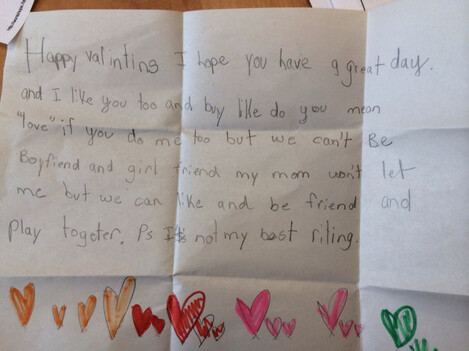 Happy valintins I hope you have a great day.
and I like you too and buy like do you mean
"love" if you do me too but we can't Be
Boyfriend and girl friend my mom won't let
me but we can like and be friend and
play togoter. Ps It's not my best riting.